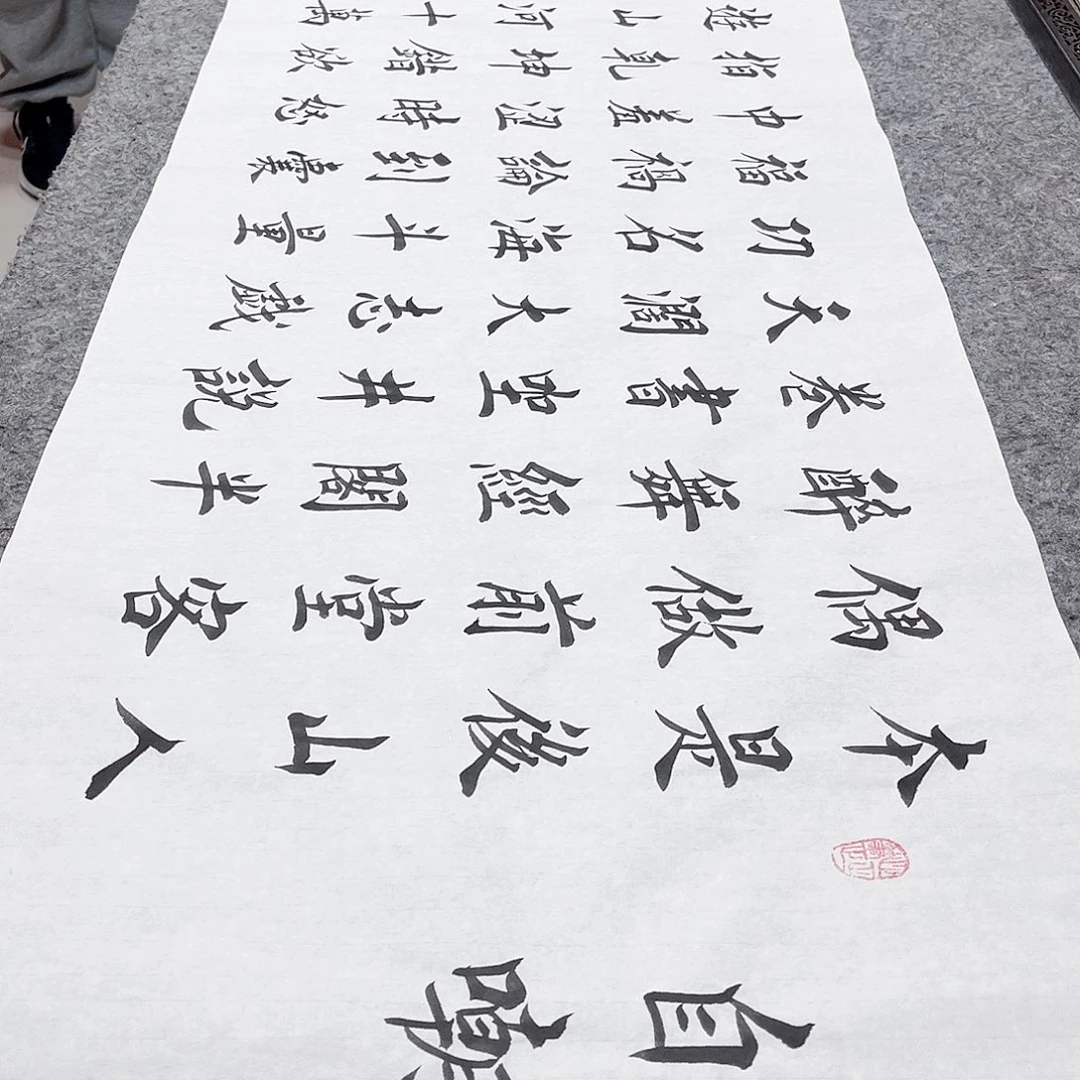 自嘲
本是後山人
偶做前堂客
醉舞經閣半
卷書坐井説
天闊大志戲
功名海斗量
福禍論到囊
中羞澀時怒
指乾坤錯欲
遊山河十萬